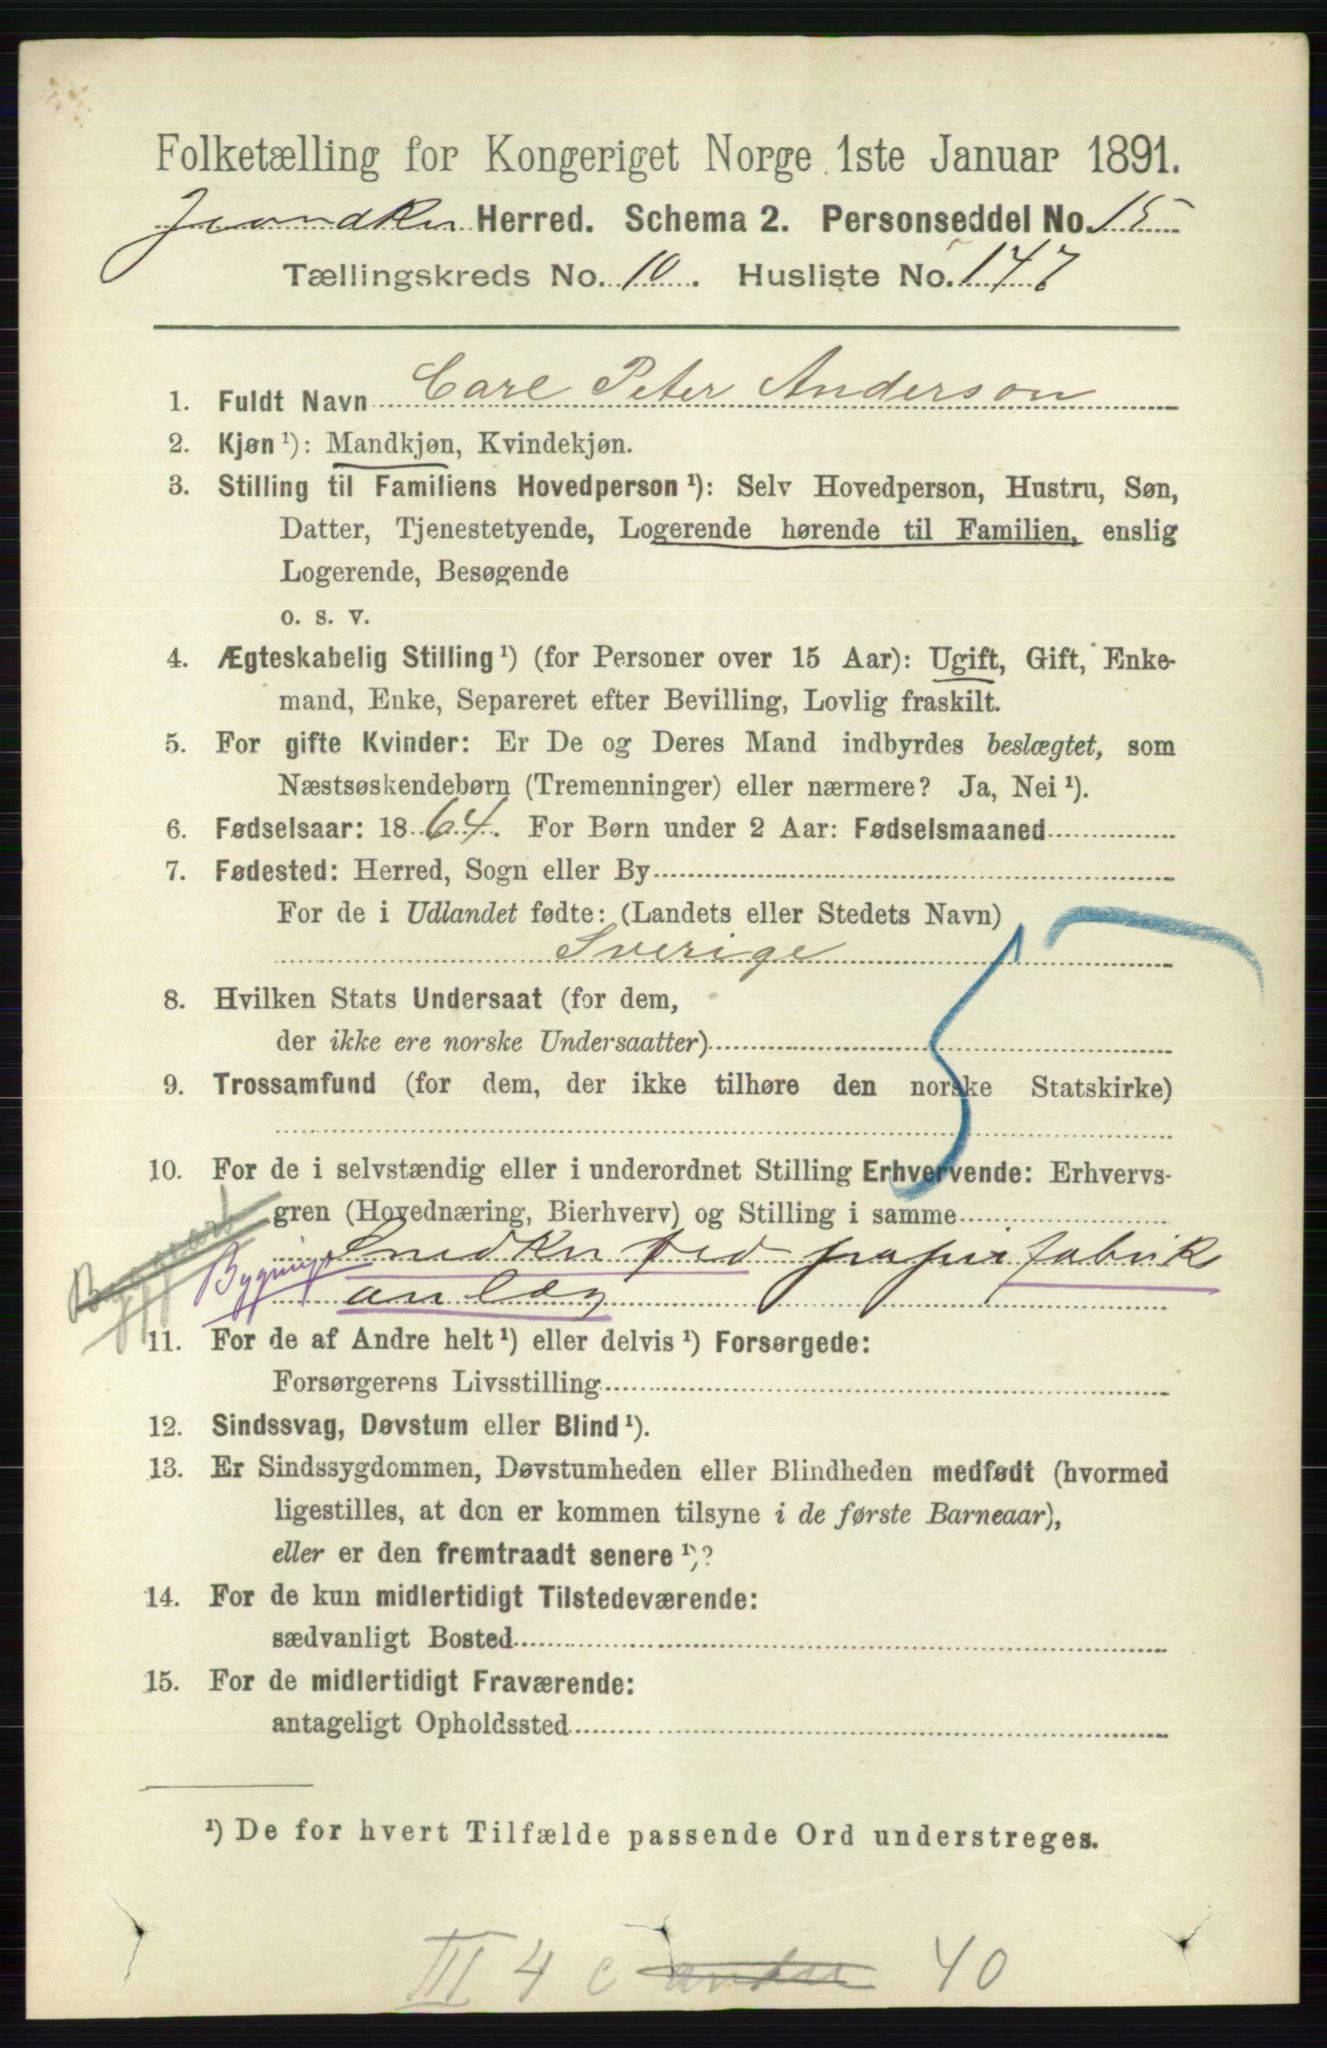 Folketælling for Kongeriget Norge 1ste Januar 1891.
Herred. Schema 2. Personseddel No. 15
Tællingskreds No. 10. Husliste No. 147
1. Fuldt Navn Carl Peter Anderson
2. Kjøn ¹): Mandkjøn, Kvindekjøn.
3. Stilling til Familiens Hovedperson ¹): Selv Hovedperson, Hustru, Søn,
Datter, Tjenestetyende, Logerende hørende til Familien, enslig
Logerende, Besøgende
o. s. v.
4. Ægteskabelig Stilling ¹) (for Personer over 15 Aar): Ugift, Gift, Enke-
mand, Enke, Separeret efter Bevilling, Lovlig fraskilt.
5. For gifte Kvinder: Er De og Deres Mand indbyrdes beslægtet, som
Næstsøskendebørn (Tremenninger) eller nærmere? Ja, Nei ¹).
6. Fødselsaar: 1864. For Børn under 2 Aar: Fødselsmaaned
7. Fødested: Herred, Sogn eller By
For de i Udlandet fødte: (Landets eller Stedets Navn)
Sverige
8. Hvilken Stats Undersaat (for dem,
der ikke ere norske Undersaatter)
9. Trossamfund (for dem, der ikke tilhøre den norske Statskirke)
10. For de i selvstændig eller i underordnet Stilling Erhvervende: Erhvervs-
gren (Hovednæring, Bierhverv) og Stilling i samme
Bygnings Snedker ved papirfabrik
anlæg
11. For de af Andre helt ¹) eller delvis ¹) Forsørgede:
Forsørgerens Livsstilling
12. Sindssvag, Døvstum eller Blind ¹).
13. Er Sindssygdommen, Døvstumheden eller Blindheden medfødt (hvormed
ligestilles, at den er kommen tilsyne i de første Barneaar),
eller er den fremtraadt senere ¹)?
14. For de kun midlertidigt Tilstedeværende:
sædvanligt Bosted
15. For de midlertidigt Fraværende:
antageligt Opholdssted
¹) De for hvert Tilfælde passende Ord understreges.
III 4 c andre 40